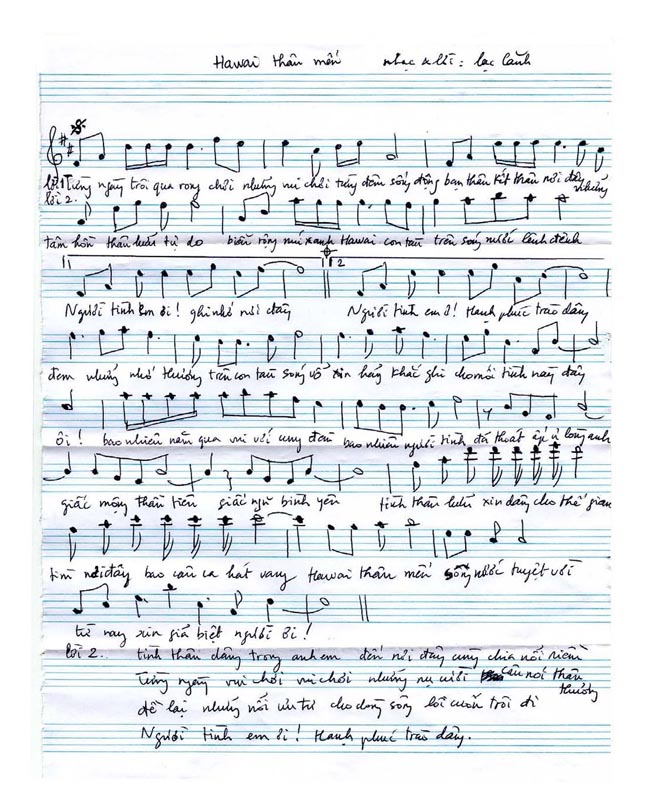 Hawai thân mến nhạc & lời : lạc Cảnh
lời 1 Từng ngày trôi qua rong chơi những vui chơi từng đêm sống động bạn thân kết thân nơi đây những
lời 2.
tâm hồn thân luôn tự do biển rộng núi xanh Hawai con tàu trên sóng nước lênh đênh
1 2
Người tình em ơi ! ghi nhớ nơi đây Người tình em ơi ! Hạnh phúc trào dâng
đêm những nhớ thương trên con tàu sóng vỗ xin hãy khắc ghi cho mối tình này đây
ôi ! bao nhiên năm qua vui với cung đàn bao nhiên người tình đã thoát ấp ủ lòng anh
giấc mộng thần tiên giấc ngủ bình yên tình thân luôn xin dâng cho thế gian
tìm nơi đây bao câu ca hát vang Hawai thân mến sông nước tuyệt vời
từ nay xin giã biệt người ơi !
lời 2. tình thân dâng trong anh em đến nơi đây cùng chia nỗi niềm
Từng ngày vui chơi vui chơi những nụ cười câu nói thân thương
để lại những nỗi ưu tư cho dòng sông lôi cuốn trôi đi
Người tình em ơi ! Hạnh phúc trào dâng.